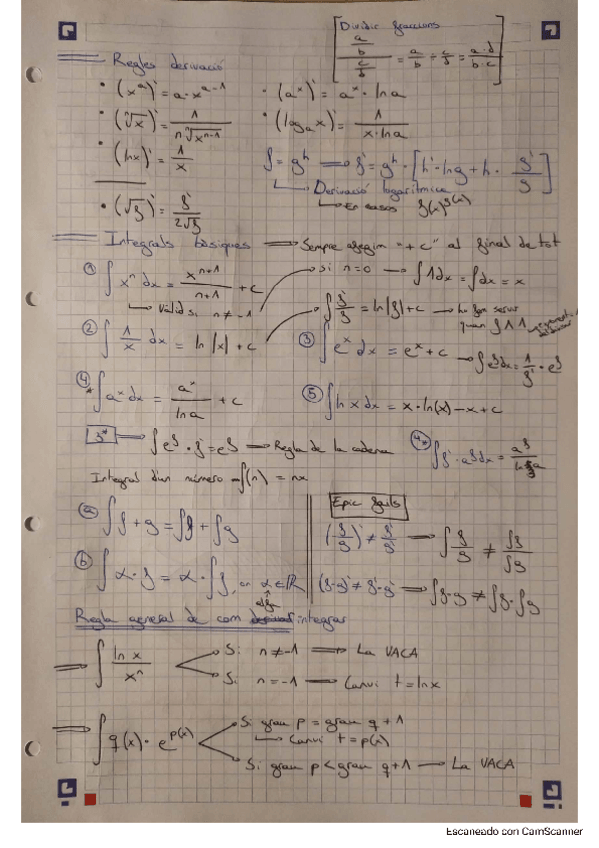 [Dividir fraccions
(a/b)/(c/d) = a/b ÷ c/d = a·d/b·c]
Regles derivació
• (xᵃ)' = a·xᵃ⁻¹
• (aˣ)' = aˣ · ln a
• (ⁿ√x)' = 1/(n ⁿ√xⁿ⁻¹)
• (logₐx)' = 1/(x·ln a)
• (ln x)' = 1/x
f = gʰ → f' = gʰ · [h'·ln g + h · g'/g]
Derivació logarítmica
En casos f(x)^g(x)
• (√f)' = f'/(2√f)
Integrals bàsiques → Sempre afegim "+ c" al final de tot
① ∫xⁿ dx = xⁿ⁺¹/(n+1) + c
si n=0 → ∫1dx = ∫dx = x
Vàlid si n ≠ -1
∫f'/f = ln|f| + c → ho fem servir
quan f
② ∫1/x dx = ln|x| + c
③ ∫eˣ dx = eˣ + c
→ ∫eᶠdx = 1/f' · eᶠ
④* ∫aˣdx = aˣ/ln a + c
⑤ ∫ln x dx = x·ln(x) - x + c
3* → ∫eᶠ · f' = eᶠ → Regla de la cadena
4* ∫f'·aᶠdx = aᶠ/ln a
Integral d'un número ∫(n) = nx
ⓐ ∫f + g = ∫f + ∫g
Epic fails
(f/g)' ≠ f'/g' → ∫f/g ≠ ∫f/∫g
ⓑ ∫α·f = α·∫f, on α ∈ ℝ
(f·g)' ≠ f'·g' → ∫f·g ≠ ∫f·∫g
Regla general de com integrar
→ ∫ln x/xⁿ
Si n ≠ -1 → La VACA
Si n = -1 → Canvi t = ln x
→ ∫q(x) · e^p(x)
Si grau p = grau q + 1
Canvi t = p(x)
Si grau p < grau q + 1 → La VACA
Escaneado con CamScanner